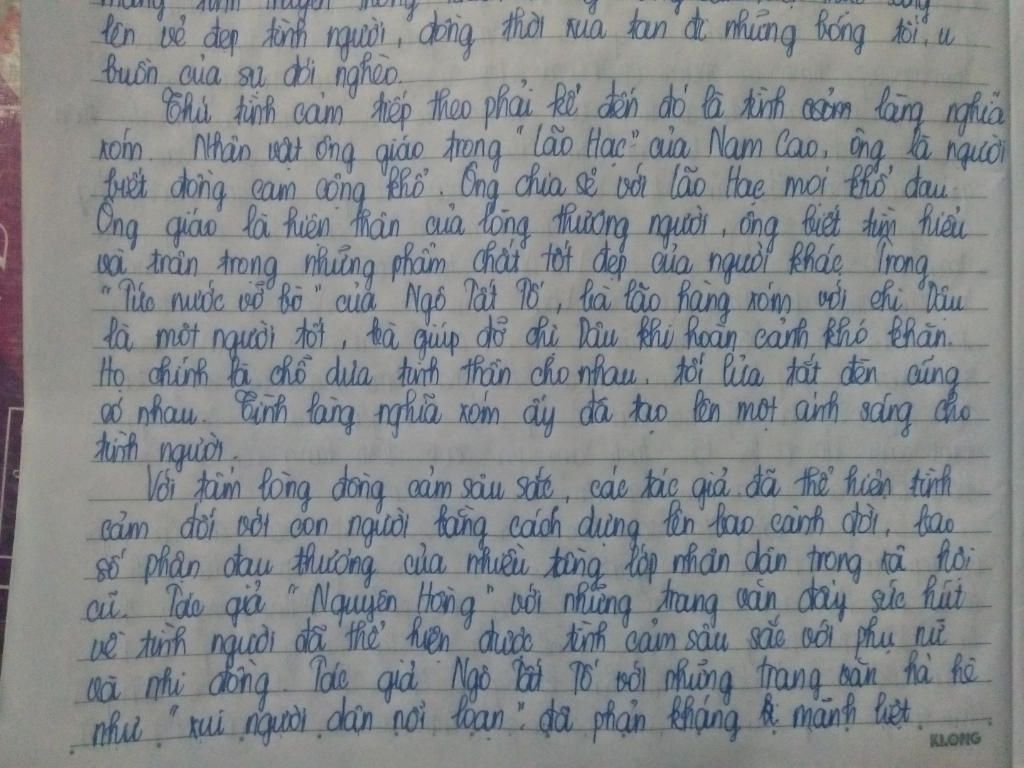 lên vẻ đẹp tình người, đồng thời xua tan đi những bóng tối, u
buồn của sự đói nghèo.
Thứ tình cảm tiếp theo phải kể đến đó là tình cảm làng nghĩa
xóm. Nhân vật ông giáo trong "Lão Hạc" của Nam Cao, ông là người
biết đồng cam cộng khổ. Ông chia sẻ với lão Hạc mọi khổ đau.
Ông giáo là hiện thân của lòng thương người, ông biết tìm hiểu
và trân trọng những phẩm chất tốt đẹp của người khác. Trong
"Tức nước vỡ bờ" của Ngô Tất Tố, bà lão hàng xóm với chị Dậu
là một người tốt, bà giúp đỡ chị Dậu khi hoàn cảnh khó khăn.
Họ chính là chỗ dựa tinh thần cho nhau, tối lửa tắt đèn cũng
có nhau. Tình làng nghĩa xóm ấy đã tạo lên một ánh sáng cho
tình người.
Với tấm lòng đồng cảm sâu sắc, các tác giả đã thể hiện tình
cảm đối với con người bằng cách dựng lên bao cảnh đời, bao
số phận đau thương của nhiều tầng lớp nhân dân trong xã hội
cũ. Tác giả "Nguyên Hồng" với những trang văn đầy sức hút
về tình người đã thể hiện được tình cảm sâu sắc với phụ nữ
và nhi đồng. Tác giả Ngô Tất Tố với những trang văn hả hê
như "xui người dân nổi loạn" đã phản kháng mãnh liệt
KLONG